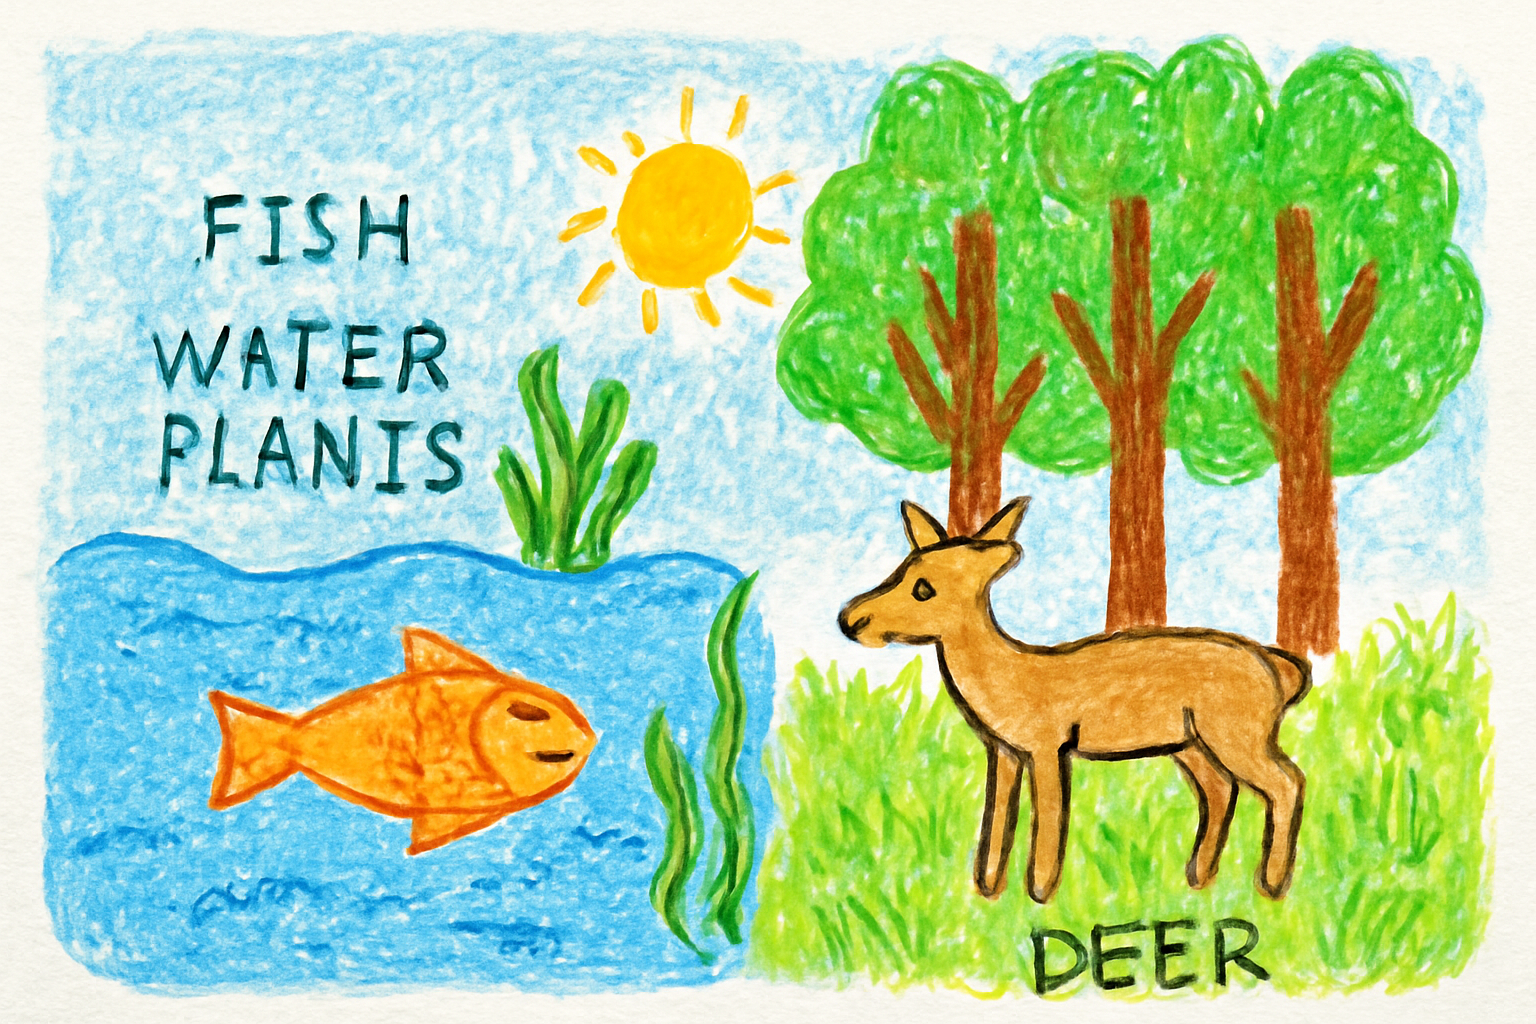 FISH
WATER
PLANIS
DEER